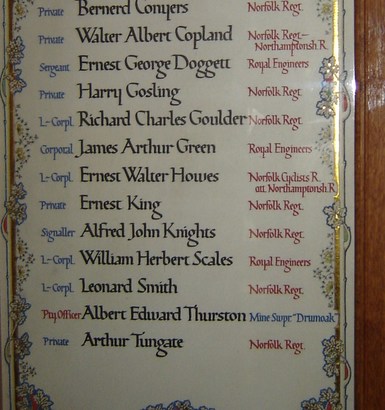 Private Bernerd Conyers Norfolk Regt.
Private Walter Albert Copland Norfolk Regt.–
Northamptonsh R.
Sergeant Ernest George Doggett Royal Engineers
Private Harry Gosling Norfolk Regt.
L–Corpl. Richard Charles Goulder Norfolk Regt.
Corporal James Arthur Green Royal Engineers
L–Corpl. Ernest Walter Howes Norfolk Cyclists R.
att. Northamptonsh R.
Private Ernest King Norfolk Regt.
Signaller Alfred John Knights Norfolk Regt.
L–Corpl. William Herbert Scales Royal Engineers
L–Corpl. Leonard Smith Norfolk Regt.
Pty Officer Albert Edward Thurston Mine Swpr "Drumoak"
Private Arthur Tungate Norfolk Regt.